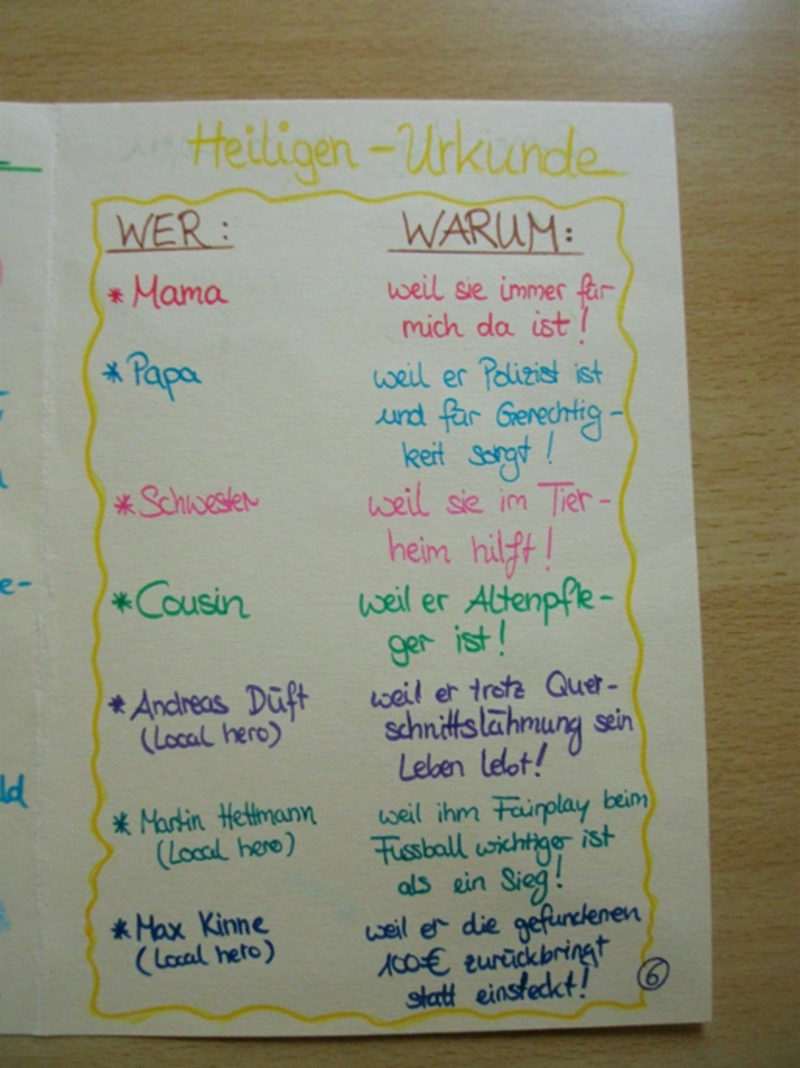 Heiligen - Urkunde
WER: WARUM:
* Mama weil sie immer für
mich da ist!
* Papa weil er Polizist ist
und für Gerechtig-
keit sorgt!
* Schwester weil sie im Tier-
heim hilft!
* Cousin weil er Altenpfle-
ger ist!
* Andreas Düft weil er trotz Quer-
(Local hero) schnittslähmung sein
Leben lebt!
* Martin Hettmann weil ihm Fairplay beim
(Local hero) Fussball wichtiger ist
als ein Sieg!
* Max Kinne weil er die gefundenen
(Local hero) 100€ zurückbringt
statt einsteckt!
6
e-
ld